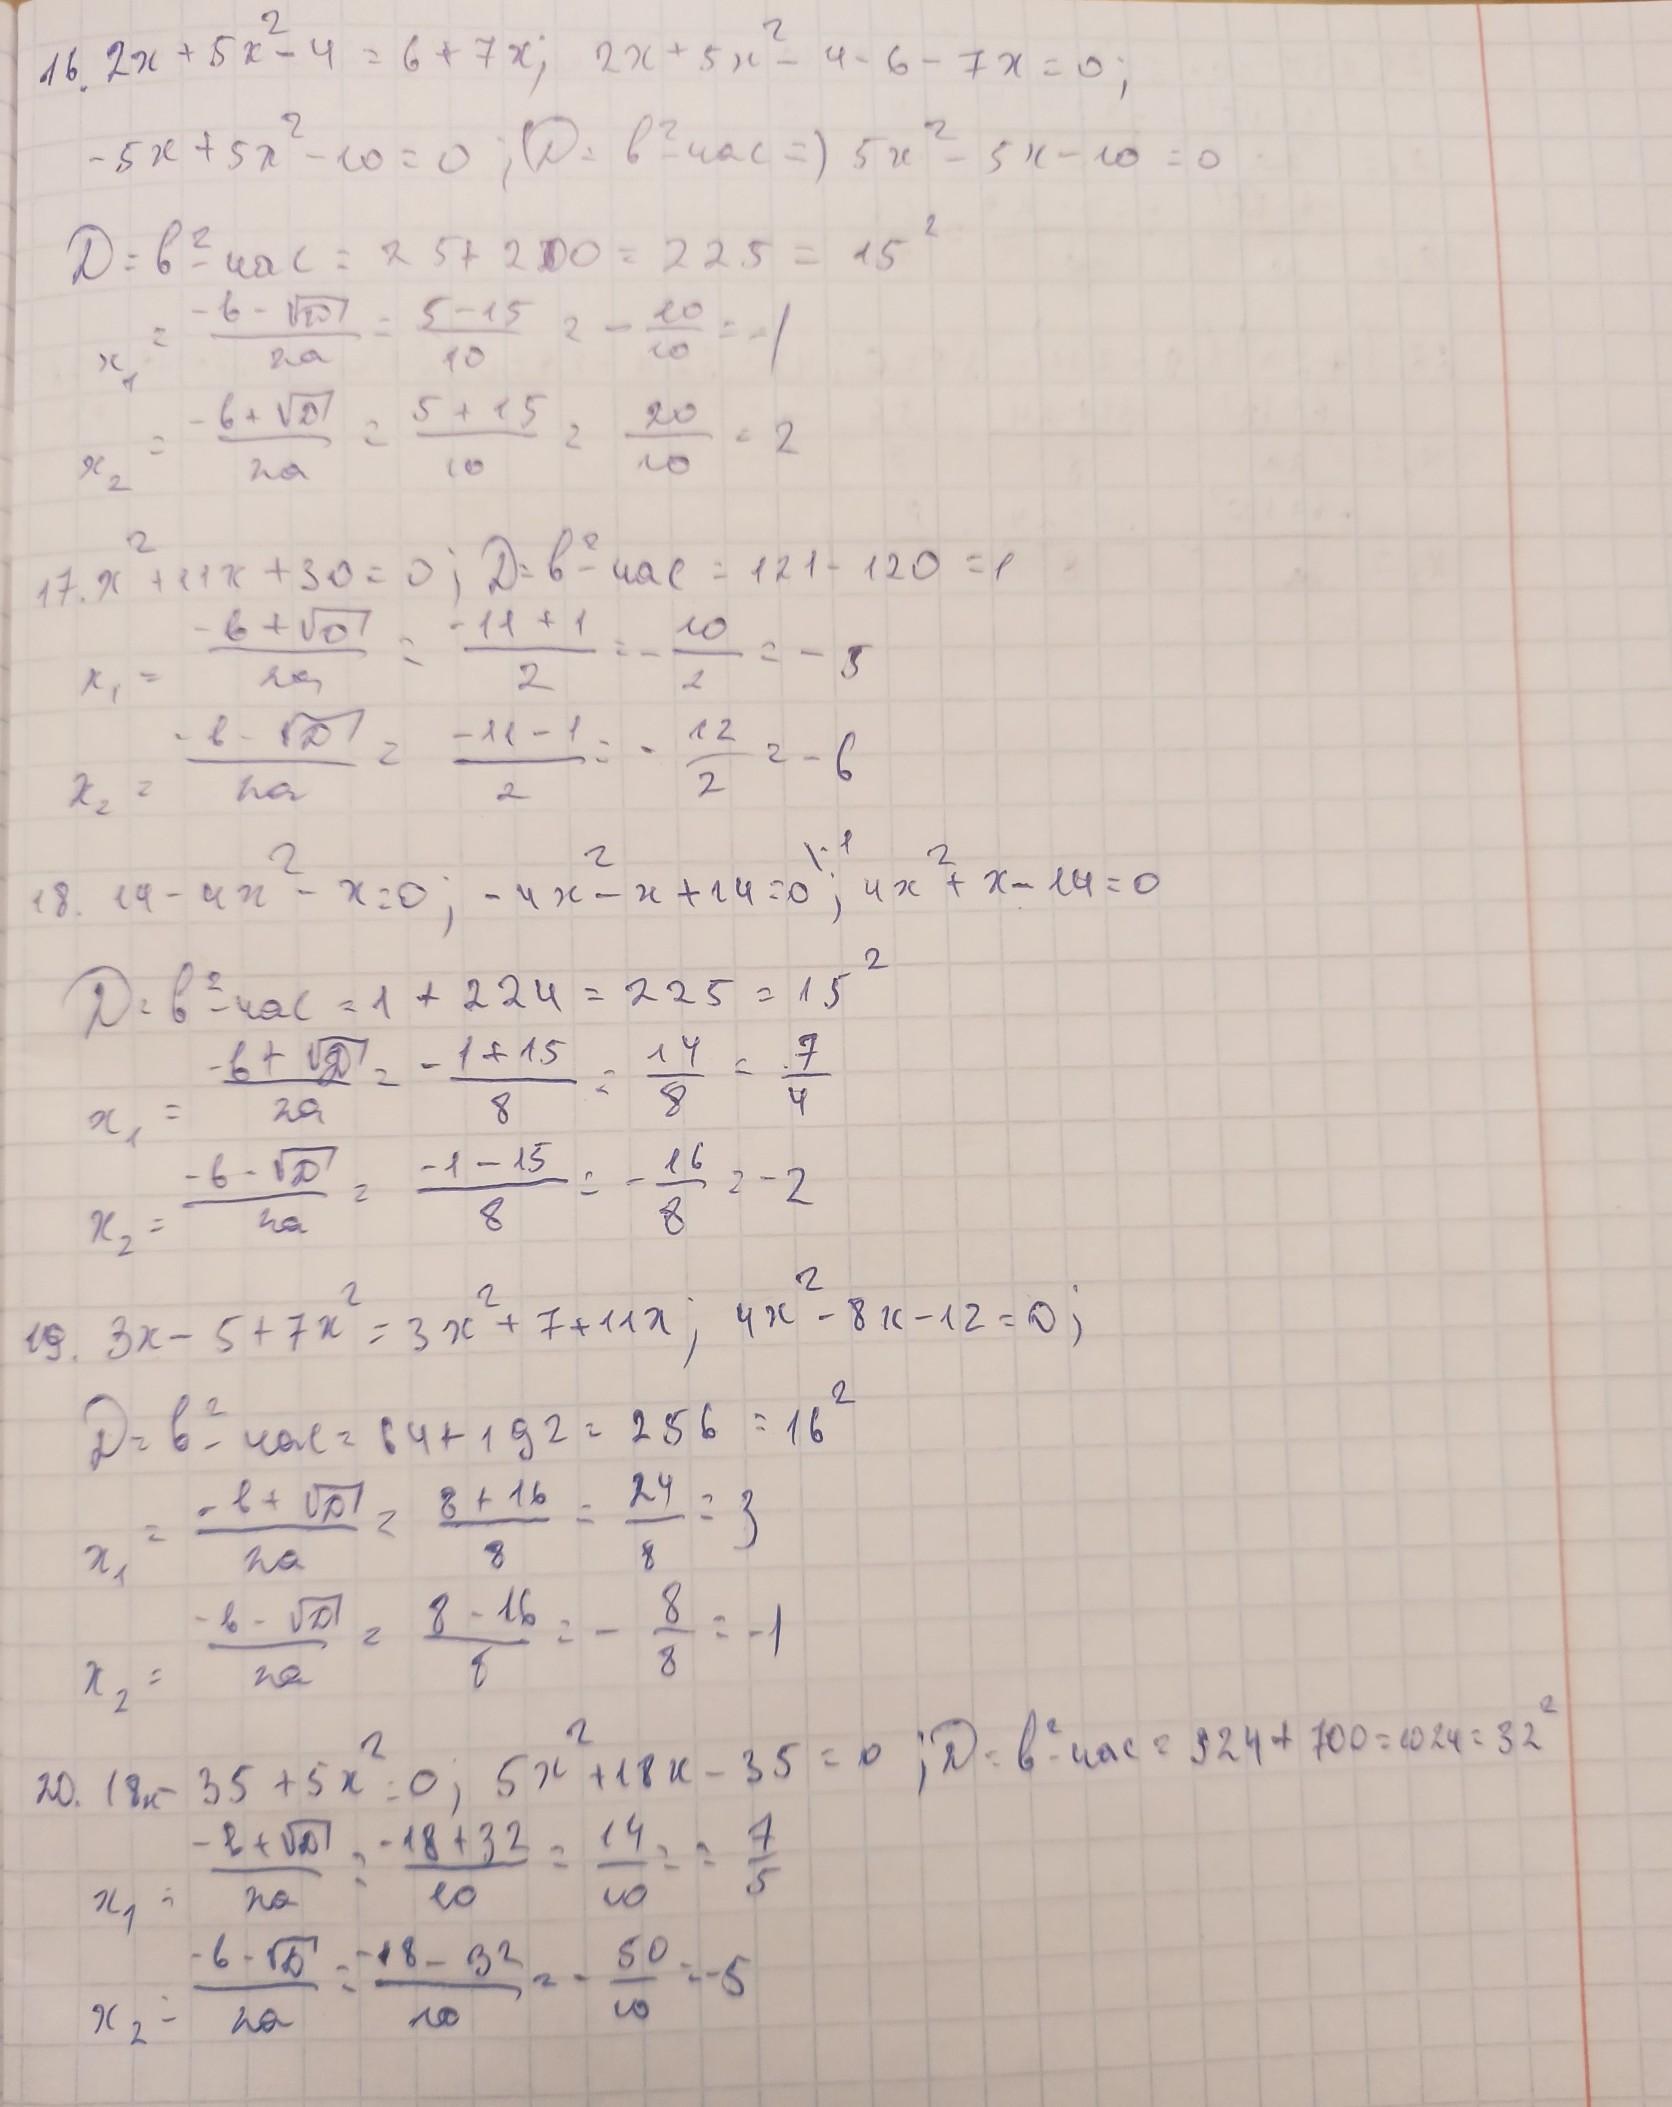 16. 2x + 5x² - 4 = 6 + 7x; 2x + 5x² - 4 - 6 - 7x = 0;
-5x + 5x² - 10 = 0; (D = b² - 4ac =) 5x² - 5x - 10 = 0
D = b² - 4ac = 25 + 200 = 225 = 15²
x₁ = (-b - √D)/2a = (5 - 15)/10 = -10/10 = -1
x₂ = (-b + √D)/2a = (5 + 15)/10 = 20/10 = 2
17. x² + 11x + 30 = 0; D = b² - 4ac = 121 - 120 = 1
x₁ = (-b + √D)/2a = (-11 + 1)/2 = -10/2 = -5
x₂ = (-b - √D)/2a = (-11 - 1)/2 = -12/2 = -6
18. 14 - 4x² - x = 0; -4x² - x + 14 = 0 \·-1; 4x² + x - 14 = 0
D = b² - 4ac = 1 + 224 = 225 = 15²
x₁ = (-b + √D)/2a = (-1 + 15)/8 = 14/8 = 7/4
x₂ = (-b - √D)/2a = (-1 - 15)/8 = -16/8 = -2
19. 3x - 5 + 7x² = 3x² + 7 + 11x; 4x² - 8x - 12 = 0;
D = b² - 4ac = 64 + 192 = 256 = 16²
x₁ = (-b + √D)/2a = (8 + 16)/8 = 24/8 = 3
x₂ = (-b - √D)/2a = (8 - 16)/8 = -8/8 = -1
20. 18x - 35 + 5x² = 0; 5x² + 18x - 35 = 0; D = b² - 4ac = 324 + 700 = 1024 = 32²
x₁ = (-b + √D)/2a = (-18 + 32)/10 = 14/10 = = 7/5
x₂ = (-b - √D)/2a = (-18 - 32)/10 = -50/10 = -5